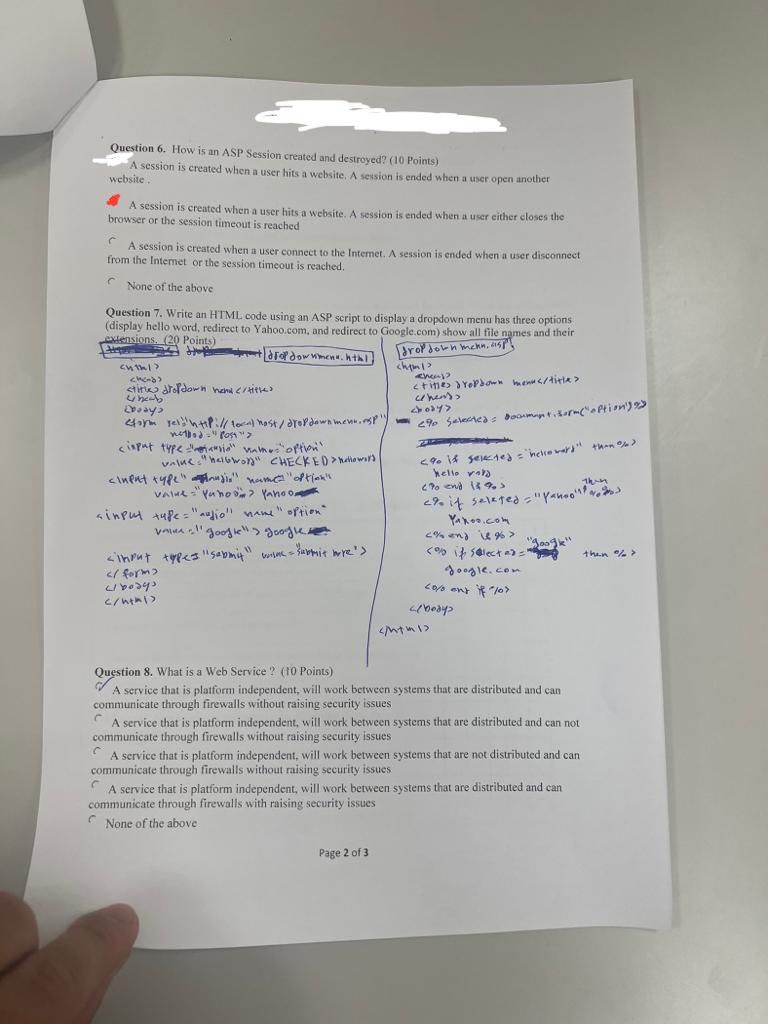 Question 6. How is an ASP Session created and destroyed? (10 Points)
A session is created when a user hits a website. A session is ended when a user open another
website .
A session is created when a user hits a website. A session is ended when a user either closes the
browser or the session timeout is reached
A session is created when a user connect to the Internet. A session is ended when a user disconnect
from the Internet or the session timeout is reached.
None of the above
Question 7. Write an HTML code using an ASP script to display a dropdown menu has three options
(display hello word, redirect to Yahoo.com, and redirect to Google.com) show all file names and their
extensions. (20 Points)
dropdownmenu.html
<html>
<head>
<title> dropdown menu </title>
</head>
<body>
<form "http://localhost/dropdownmenu.asp"
method="Post">
<input type= name="option"
value="helloword" CHECKED> helloword
<input type" name="option"
value="yahoo"> yahoo
<input type="audio" name"option"
value="google"> google
<input type="submit" value="submit here">
</form>
</body>
</html>
dropdownmenu.asp
<html>
<head>
<title> dropdown menu </title>
</head>
<body>
<% selected = Document.form("option")%>
<% if selected = "helloword" then %>
hello word
<% end if %>
<% if selected = "yahoo" then %>
Yahoo.com
<% end if %>
<% if selected = "google" then %>
google.com
<% end if %>
</body>
</html>
Question 8. What is a Web Service ? (10 Points)
A service that is platform independent, will work between systems that are distributed and can
communicate through firewalls without raising security issues
A service that is platform independent, will work between systems that are distributed and can not
communicate through firewalls without raising security issues
A service that is platform independent, will work between systems that are not distributed and can
communicate through firewalls without raising security issues
A service that is platform independent, will work between systems that are distributed and can
communicate through firewalls with raising security issues
None of the above
Page 2 of 3